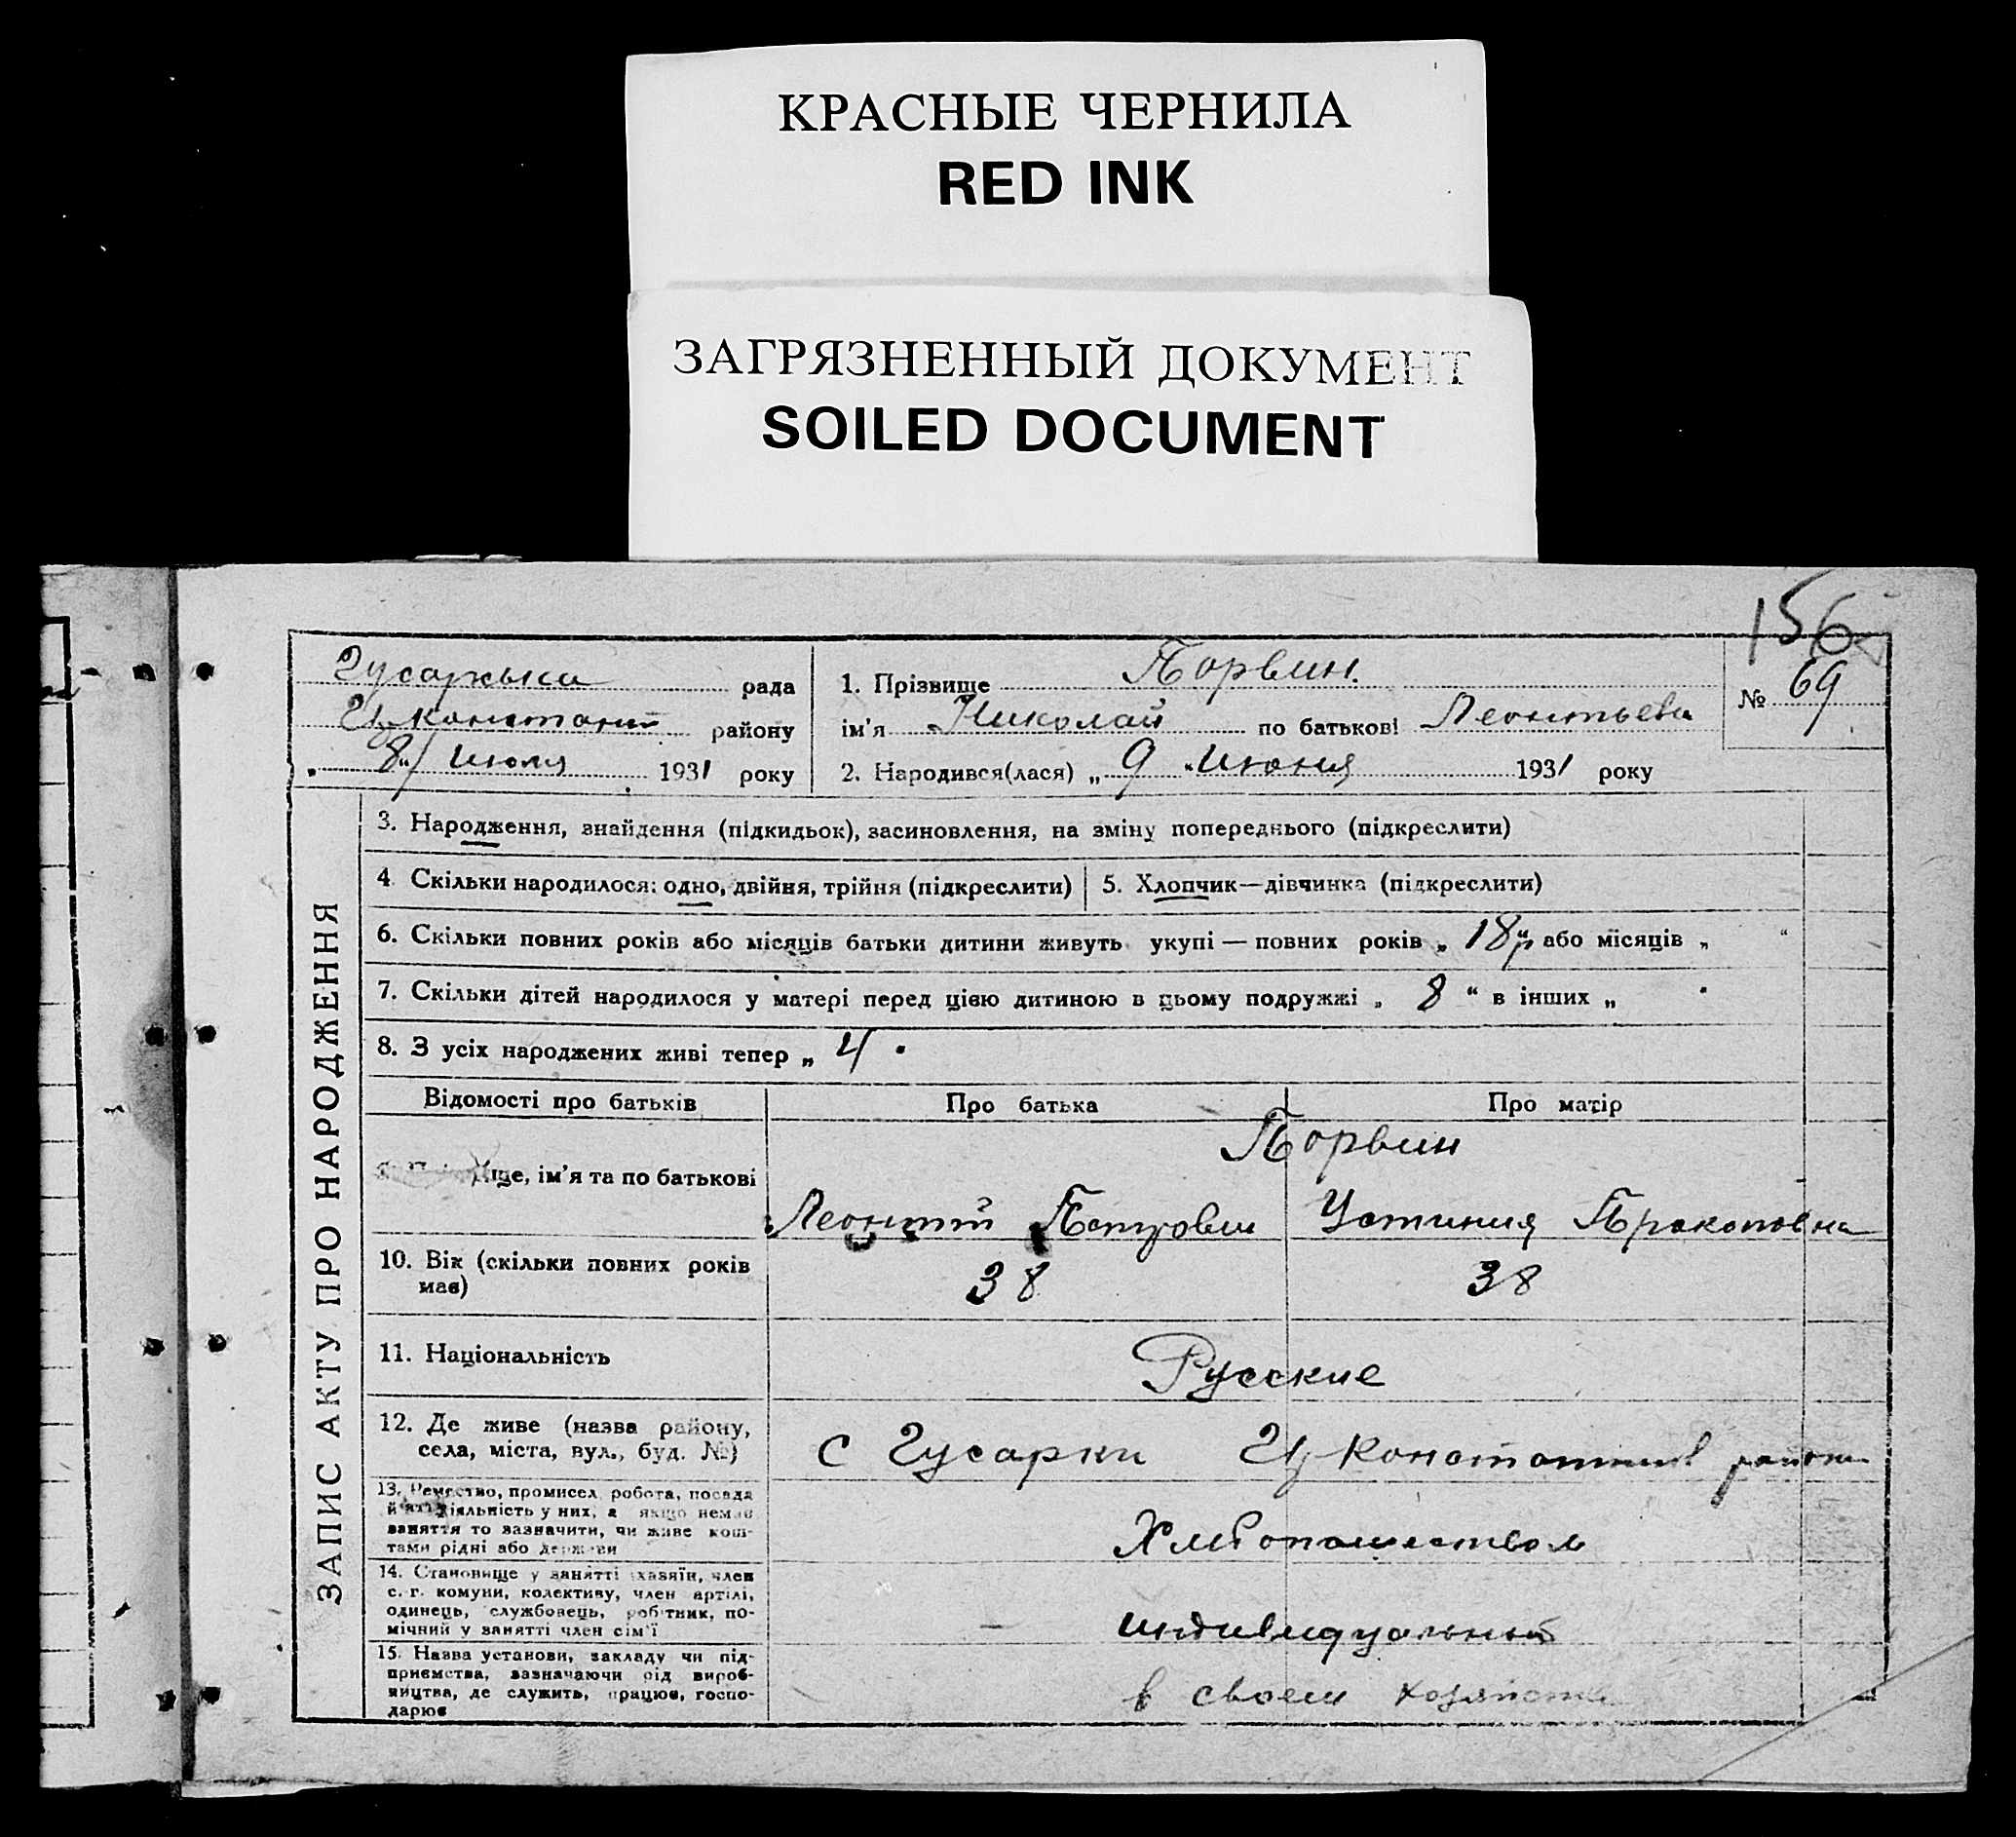 КРАСНЫЕ ЧЕРНИЛА
RED INK
ЗАГРЯЗНЕННЫЙ ДОКУМЕНТ
SOILED DOCUMENT
156
Гусарська рада
району
„ 8" Июля 1931 року
1. Прізвище Порвин.
ім'я Николай по батькові Леонтьевич
2. Народився(лася) „ 9 " Июня 1931 року
№ 69
ЗАПИС АКТУ ПРО НАРОДЖЕННЯ
3. Народження, знайдення (підкидьок), засиновлення, на зміну попереднього (підкреслити)
4. Скільки народилося: одно, двійня, трійня (підкреслити) 5. Хлопчик—дівчинка (підкреслити)
6. Скільки повних років або місяців батьки дитини живуть укупі — повних років „ 18 " або місяців „ “
7. Скільки дітей народилося у матері перед цією дитиною в цьому подружжі „ 8 “ в інших „ “
8. З усіх народжених живі тепер „ 4 "
Відомості про батьків Про батька Про матір
Порвин
ім'я та по батькові
Леонтій Петрович Устиния Прокоповна
10. Вік (скільки повних років
має) 38 38
11. Національність Русские
12. Де живе (назва району,
села, міста, вул., буд. №) с Гусарки Ц Константинов района
13. Ремество, промисел, робота, посада
й діяльність у них, а якщо немає
заняття то зазначити, чи живе кош-
тами рідні або держави
Хлебопашеством
14. Становище у занятті хазяїн, член
с.-г. комуни, колективу, член артілі,
одинець, службовець, робітник, по-
мічний у занятті член сім'ї
индивидуальный
15. Назва установи, закладу чи під-
приємства, зазначаючи рід вироб-
ництва, де служить, працює, госпо-
дарює
в своем хозяйстве